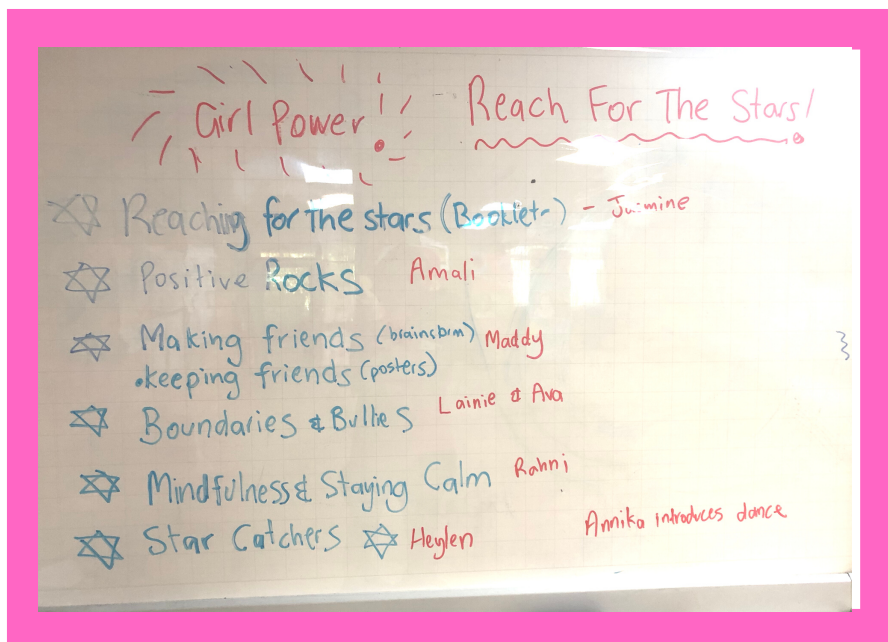 Girl Power! Reach For The Stars!
Reaching for The stars (Booklet) - Jasmine
Positive Rocks Amali
Making friends (brainstorm) Maddy
•keeping friends (posters)
Boundaries & Bullies Lainie & Ava
Mindfulness & Staying Calm Rahni
Star Catchers Heylen
Annika introduces dance